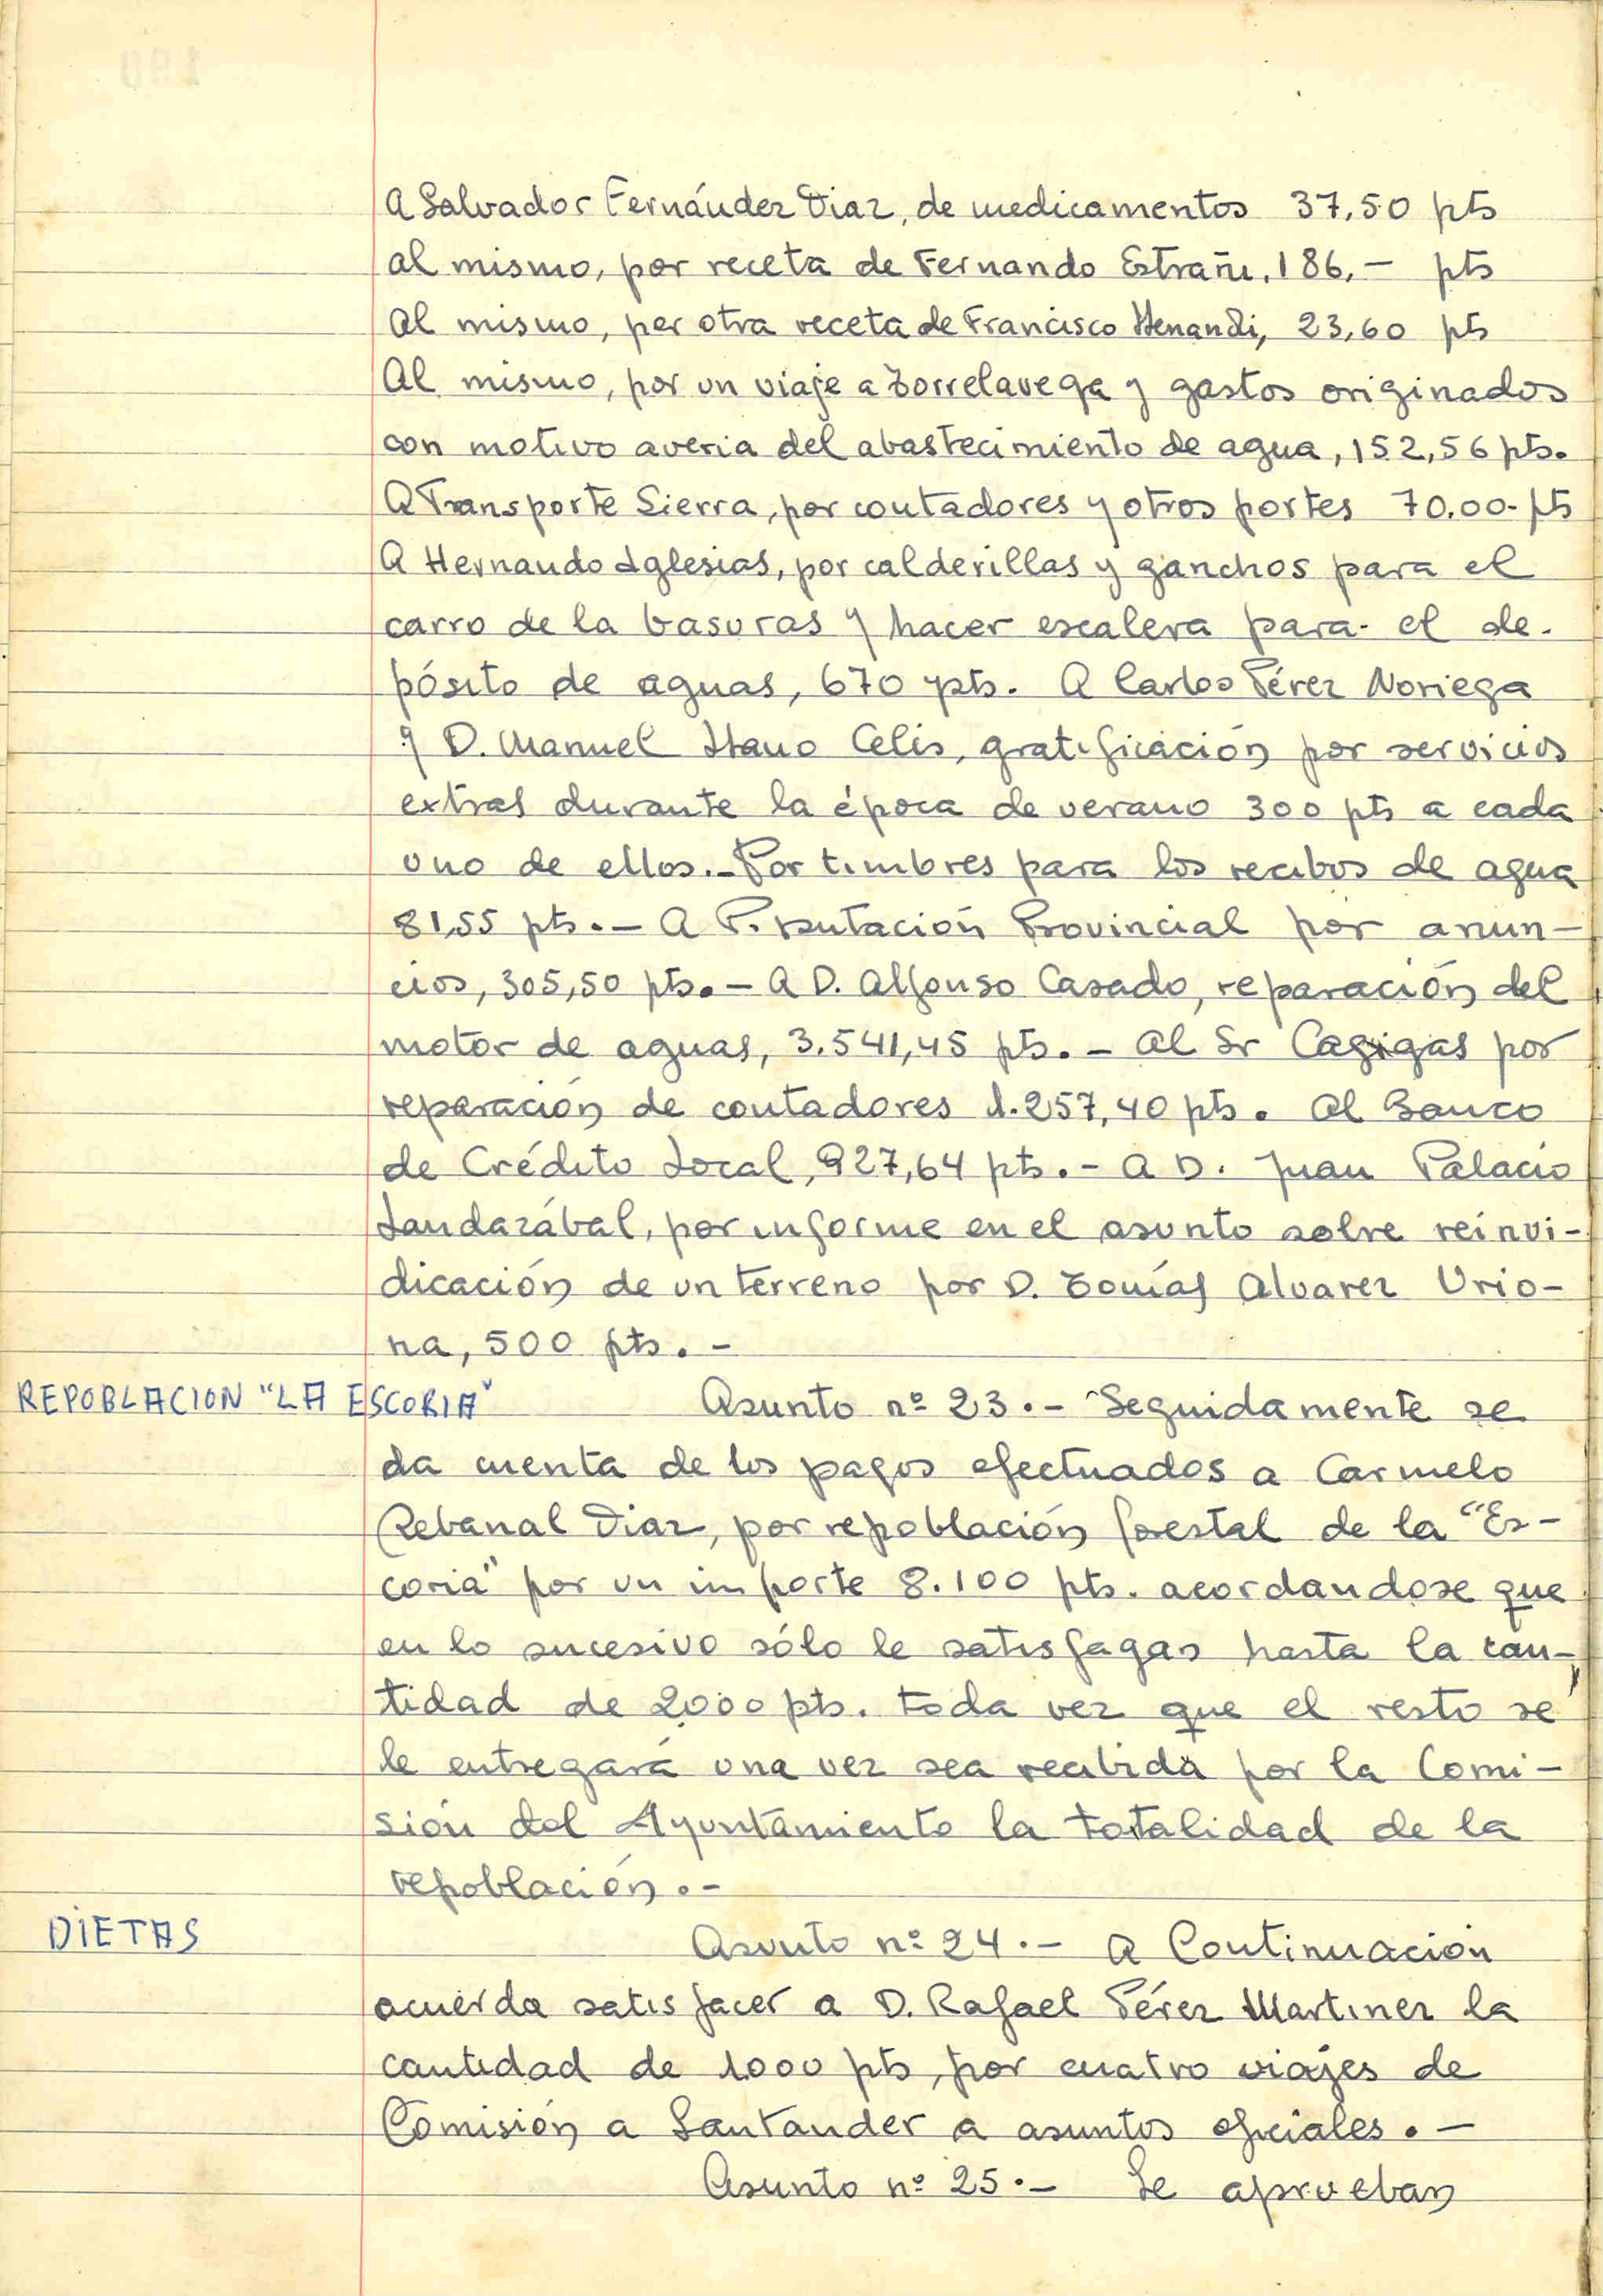 A Salvador Fernández Diaz, de medicamentos 37,50 pts
al mismo, por receta de Fernando Estrañi, 186,- pts
Al mismo, por otra receta de Francisco Henandi, 23,60 pts
Al mismo, por un viaje a Torrelavega y gastos originados
con motivo averia del abastecimiento de agua, 152,56 pts.
A Transporte Sierra, por contadores y otros portes 70.00- pts
A Hernando Iglesias, por calderillas y ganchos para el
carro de la basuras y hacer escalera para el de-
pósito de aguas, 670 pts. A Carlos Pérez Noriega
y D. Manuel Llano Celis, gratificación por servicios
extras durante la época de verano 300 pts a cada
uno de ellos.- Por timbres para los recibos de agua
81,55 pts.- A Diputación Provincial por anun-
cios, 305,50 pts.- A D. Alfonso Casado, reparación del
motor de aguas, 3.541,45 pts.- Al Sr Cagigas por
reparación de contadores 1.257,40 pts. Al Banco
de Crédito Local, 927,64 pts.- A D. Juan Palacio
Landazábal, por informe en el asunto sobre reinvi-
dicación de un terreno por D. Tomás Alvarez Urio-
na, 500 pts.-
REPOBLACION "LA ESCORIA"
Asunto nº 23.- Seguidamente se
da cuenta de los pagos efectuados a Carmelo
Rebanal Diaz, por repoblación forestal de la "Es-
coria" por un importe 8.100 pts. acordandose que
en lo sucesivo sólo le satisfagan hasta la can-
tidad de 2.000 pts. toda vez que el resto se
le entregará una vez sea recibida por la Comi-
sión del Ayuntamiento la totalidad de la
repoblación.-
DIETAS
Asunto nº 24.- A Continuación
acuerda satisfacer a D. Rafael Pérez Martinez la
cantidad de 1.000 pts, por cuatro viajes de
Comisión a Santander a asuntos oficiales.-
Asunto nº 25.- Se aprueban